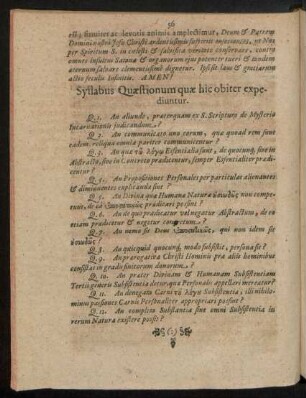 56
est; firmiter ac devotis animis amplectimur, Deum & Patrem
Domini nostri Jesu Christi ardentissimis suspiriis invocantes, ut Nos
per Spiritum S. in cœlesti & salvifica veritate conservare, contra
omnes insultus Satanæ & organorum ejus potenter tueri & tandem
æternum salvare clementissimè dignetur. Ipsi sit laus & gratiarum
actio seculis infinitis. AMEN!
Syllabus Quæstionum quæ hîc obiter expe-
diuntur.
Q. 1. An aliunde, præterquam ex S. Scripturâ de Mysterio
Incarnationis judicandum?
Q. 2. An communicato uno eorum, quæ quoad rem sunt
eadem, reliqua omnia pariter communicentur?
Q. 3. An quæ τῦ λόγῳ Essentialia sunt, de quocunq; sive in
Abstracto, sive in Concreto prædicentur, semper Essentialiter prædi-
centur?
Q. 4. Propositiones Personales per particulas alienantes
& diminuentes explicandæ sint?
Q. 5. An Divina quæ Humanæ Naturæ non compe-
tunt, de eâ prædicari possint?
Q. 6. An de quo prædicatur vel negatur Abstractum, de eo
etiam prædicetur & negetur concretum?
Q. 7. An uama sit Deus, qui non idem sit
Q. 8. An quicquid quocunq; modo subsistit, persona sit?
Q. 9. An prærogativa Christi Hominis præ aliis hominibus
consistat in gradu finitorum donorum?
Q. 10. An præter Divinam & Humanam Subsistentiam
Tertii generis Subsistentia detur, quæ Personalis appellari mereatur?
Q. 11. An denegatâ Carni τῦ λόγῳ Subsistentiâ, illi nihilo-
minus passiones Carnis Personaliter appropriari possint?
Q. 12. An completa Substantia sine omni Subsistentia in
rerum Natura existere possit?